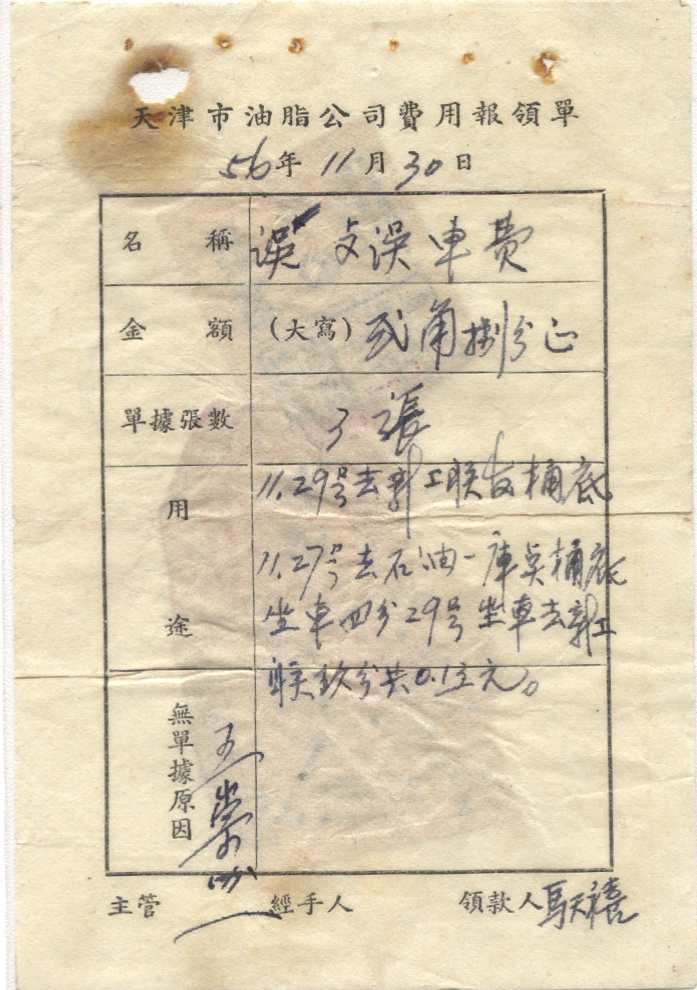 天津市油脂公司費用報領單
56年11月30日
名稱 误 夕误車費
金額 (大寫) 弍角捌分正
單據張數 3張
用途
11.29号去郭工联 桶底
11.27号去石油一庫 桶底
坐車四分29号坐車去郭工
联玖分共0.13元。
無單據原因
主管 經手人 領款人 馬天禧